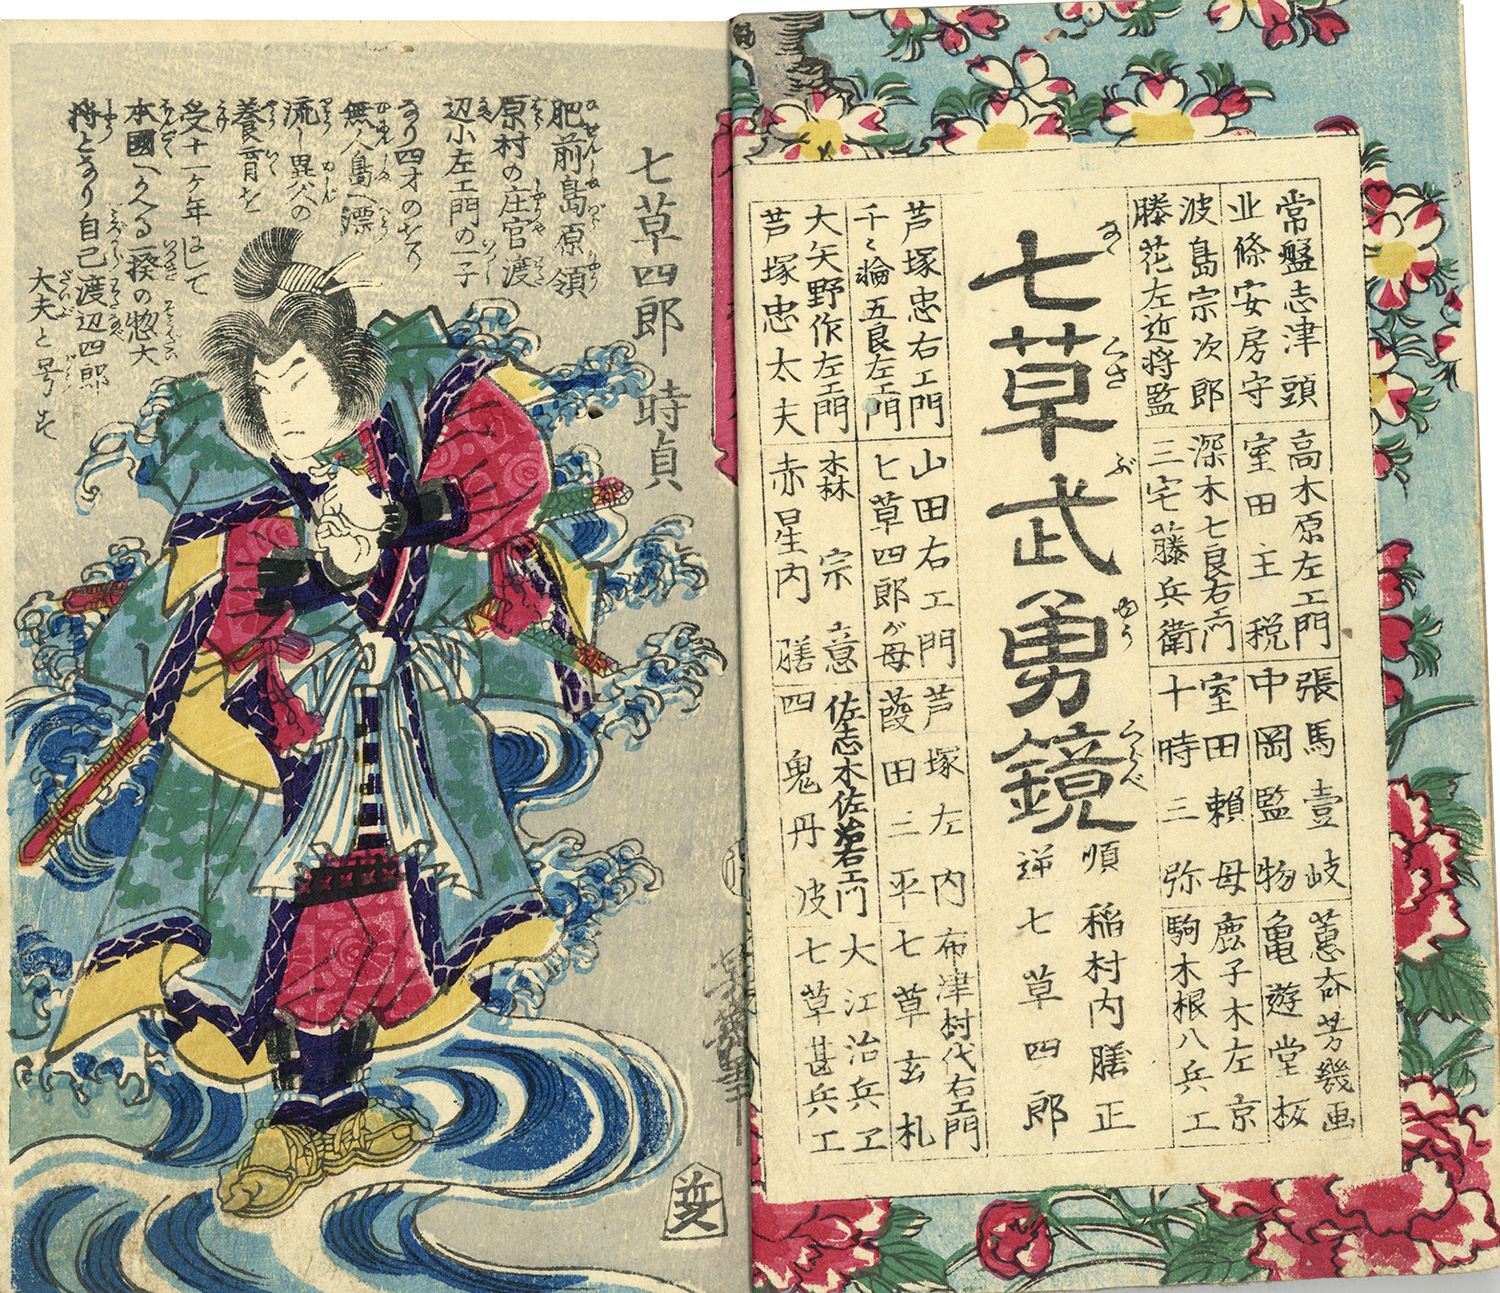 常盤志津頭
高木原左エ門
張馬壹岐
蕙斎芳幾画
北條安房守
室田主税
中岡監物
亀遊堂板
波島宗次郎
深木七良右エ門
室田頼母
鹿子木左京
滕花左近将監
三宅藤兵衛
十時三弥
駒木根八兵エ
七草武勇鏡
なゝくさぶゆうくらべ
順 稲村内膳正
逆 七草四郎
芦塚忠右エ門
山田右エ門
芦塚左内
布津村代右エ門
千々輪五良左エ門
七草四郎が母
葭田三平
七草玄札
大矢野作左エ門
森宗意
佐志木佐治右エ門
大江治兵エ
芦塚忠太夫
赤星内膳
四鬼丹波
七草甚兵エ
七草四郎 時貞
肥前島原領
原村の庄官渡
辺小左エ門の一子
なり四才のせつ
無人島へ漂
流し異人の
養育を
受十一ヶ年にして
本國へかへる一揆の惣大
将となり自己渡辺四郎
大夫と号す